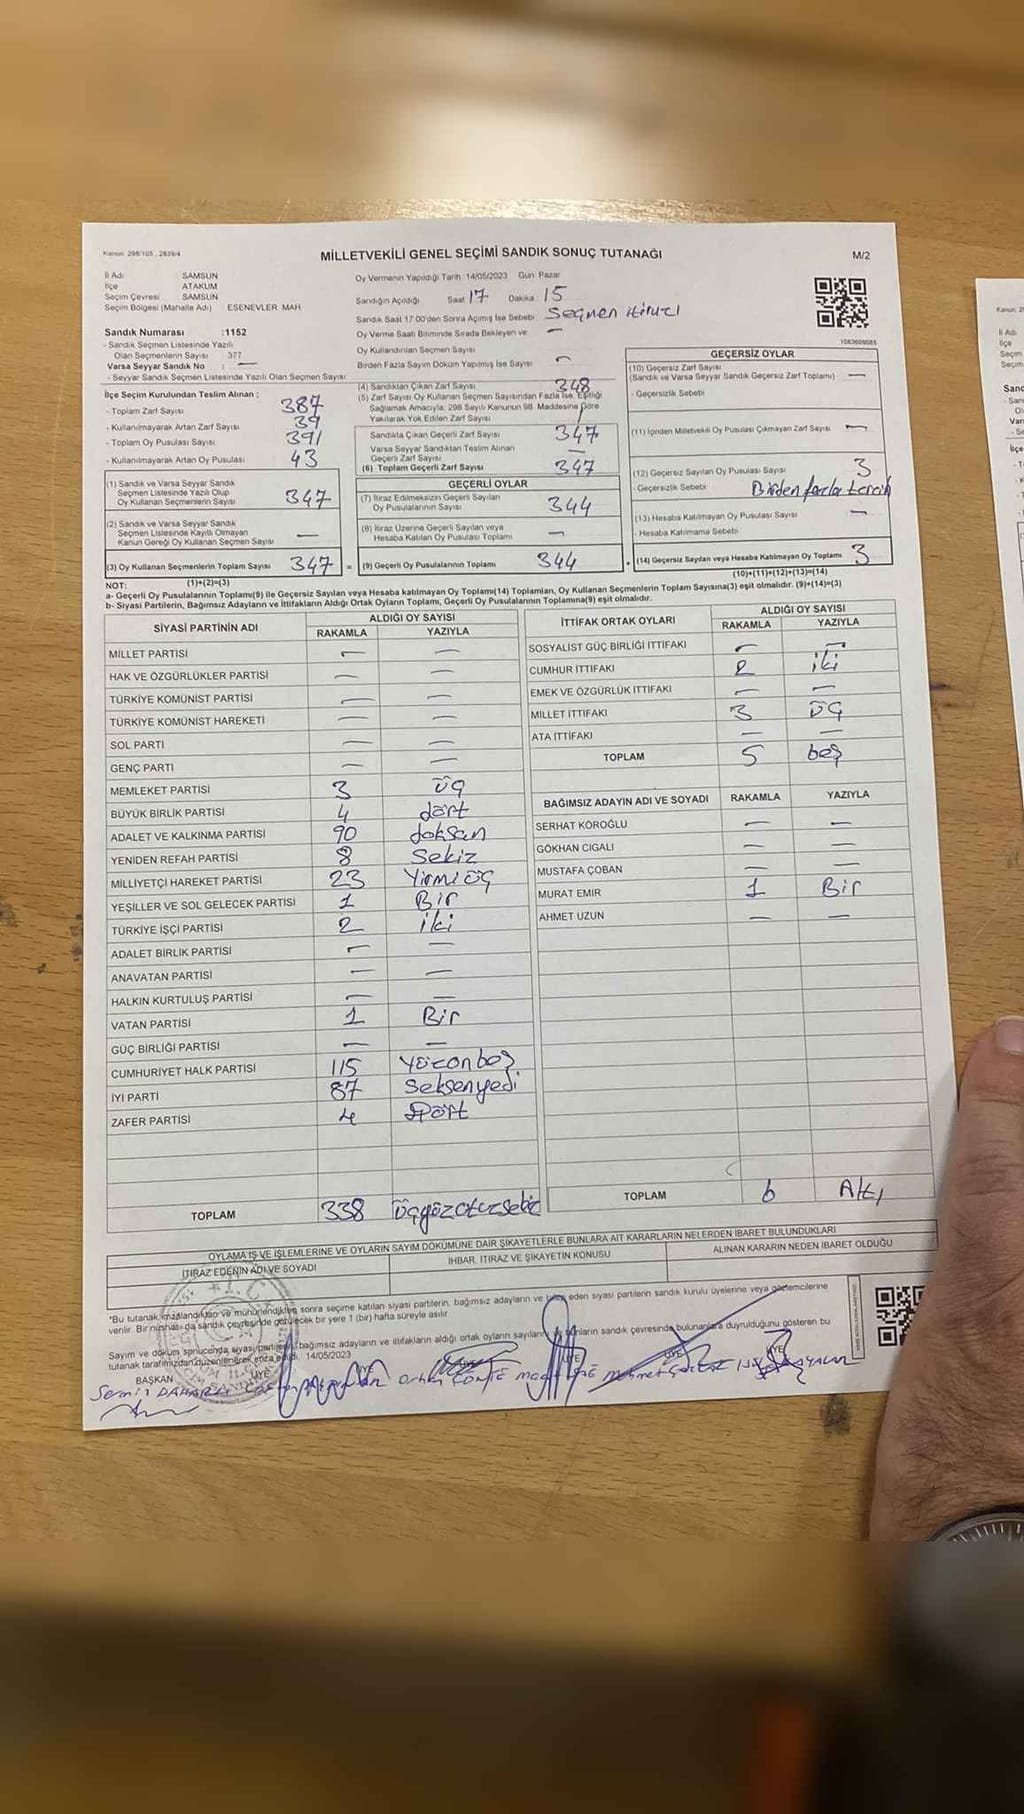 Kanun: 298/105, 2839/4
MİLLETVEKİLİ GENEL SEÇİMİ SANDIK SONUÇ TUTANAĞI
M/2
İl Adı SAMSUN
İlçe ATAKUM
Seçim Çevresi SAMSUN
Seçim Bölgesi (Mahalle Adı) ESENEVLER MAH
Sandık Numarası :1152
- Sandık Seçmen Listesinde Yazılı
Olan Seçmenlerin Sayısı 377
Varsa Seyyar Sandık No : —
- Seyyar Sandık Seçmen Listesinde Yazılı Olan Seçmen Sayısı:
Oy Vermenin Yapıldığı Tarih :14/05/2023 Gün: Pazar
Sandığın Açıldığı Saat 17 Dakika 15
Sandık Saat 17:00'den Sonra Açılmış İse Sebebi: Seçmen
Oy Verme Saati Bitiminde Sırada Bekleyen ve —
Oy Kullandırılan Seçmen Sayısı
Birden Fazla Sayım Döküm Yapılmış İse Sayısı —
1083609085
İlçe Seçim Kurulundan Teslim Alınan :
- Toplam Zarf Sayısı 387
- Kullanılmayarak Artan Zarf Sayısı 39
- Toplam Oy Pusulası Sayısı 391
- Kullanılmayarak Artan Oy Pusulası 43
(1) Sandık ve Varsa Seyyar Sandık
Seçmen Listesinde Yazılı Olup
Oy Kullanan Seçmenlerin Sayısı 347
(2) Sandık ve Varsa Seyyar Sandık
Seçmen Listesinde Kayıtlı Olmayan
Kanun Gereği Oy Kullanan Seçmen Sayısı —
(3) Oy Kullanan Seçmenlerin Toplam Sayısı 347 =
(4) Sandıktan Çıkan Zarf Sayısı 348
(5) Zarf Sayısı Oy Kullanan Seçmen Sayısından Fazla İse, Eşitliği
Sağlamak Amacıyla; 298 Sayılı Kanunun 98. Maddesine Göre
Yakılarak Yok Edilen Zarf Sayısı 1
Sandıkta Çıkan Geçerli Zarf Sayısı 347
Varsa Seyyar Sandıktan Teslim Alınan
Geçerli Zarf Sayısı —
(6) Toplam Geçerli Zarf Sayısı 347
GEÇERLİ OYLAR
(7) İtiraz Edilmeksizin Geçerli Sayılan
Oy Pusulalarının Sayısı 344
(8) İtiraz Üzerine Geçerli Sayılan veya
Hesaba Katılan Oy Pusulası Toplamı —
(9) Geçerli Oy Pusulalarının Toplamı 344 +
GEÇERSİZ OYLAR
(10) Geçersiz Zarf Sayısı
(Sandık ve Varsa Seyyar Sandık Geçersiz Zarf Toplamı) —
- Geçersizlik Sebebi
(11) İçinden Milletvekili Oy Pusulası Çıkmayan Zarf Sayısı —
(12) Geçersiz Sayılan Oy Pusulası Sayısı 3
- Geçersizlik Sebebi Birden fazla tercih
(13) Hesaba Katılmayan Oy Pusulası Sayısı —
- Hesaba Katılmama Sebebi
(14) Geçersiz Sayılan veya Hesaba Katılmayan Oy Toplamı 3
NOT: (1)+(2)=(3)
(10)+(11)+(12)+(13)=(14)
a- Geçerli Oy Pusulalarının Toplamı(9) ile Geçersiz Sayılan veya Hesaba katılmayan Oy Toplamı(14) Toplamları, Oy Kullanan Seçmenlerin Toplam Sayısına(3) eşit olmalıdır. (9)+(14)=(3)
b- Siyasi Partilerin, Bağımsız Adayların ve İttifakların Aldığı Ortak Oyların Toplamı, Geçerli Oy Pusulalarının Toplamına(9) eşit olmalıdır.
SİYASİ PARTİNİN ADI ALDIĞI OY SAYISI
RAKAMLA YAZIYLA
MİLLET PARTİSİ — —
HAK VE ÖZGÜRLÜKLER PARTİSİ — —
TÜRKİYE KOMÜNİST PARTİSİ — —
TÜRKİYE KOMÜNİST HAREKETİ — —
SOL PARTİ — —
GENÇ PARTİ — —
MEMLEKET PARTİSİ 3 üç
BÜYÜK BİRLİK PARTİSİ 4 dört
ADALET VE KALKINMA PARTİSİ 90 doksan
YENİDEN REFAH PARTİSİ 8 Sekiz
MİLLİYETÇİ HAREKET PARTİSİ 23 Yirmiüç
YEŞİLLER VE SOL GELECEK PARTİSİ 1 Bir
TÜRKİYE İŞÇİ PARTİSİ 2 iki
ADALET BİRLİK PARTİSİ — —
ANAVATAN PARTİSİ — —
HALKIN KURTULUŞ PARTİSİ — —
VATAN PARTİSİ 1 Bir
GÜÇ BİRLİĞİ PARTİSİ — —
CUMHURİYET HALK PARTİSİ 115 Yüzonbeş
İYİ PARTİ 87 Seksenyedi
ZAFER PARTİSİ 4 Dört
TOPLAM 338 Üçyüzotuzsekiz
İTTİFAK ORTAK OYLARI ALDIĞI OY SAYISI
RAKAMLA YAZIYLA
SOSYALİST GÜÇ BİRLİĞİ İTTİFAKI — —
CUMHUR İTTİFAKI 2 iki
EMEK VE ÖZGÜRLÜK İTTİFAKI — —
MİLLET İTTİFAKI 3 ÜÇ
ATA İTTİFAKI — —
TOPLAM 5 beş
BAĞIMSIZ ADAYIN ADI VE SOYADI RAKAMLA YAZIYLA
SERHAT KÖROĞLU — —
GÖKHAN CIGALI — —
MUSTAFA ÇOBAN — —
MURAT EMİR 1 Bir
AHMET UZUN — —
TOPLAM 6 Altı
OYLAMA İŞ VE İŞLEMLERİNE VE OYLARIN SAYIM DÖKÜMÜNE DAİR ŞİKAYETLERLE BUNLARA AİT KARARLARIN NELERDEN İBARET BULUNDUKLARI
İTİRAZ EDENİN ADI VE SOYADI
İHBAR, İTİRAZ VE ŞİKAYETİN KONUSU
ALINAN KARARIN NEDEN İBARET OLDUĞU
*Bu tutanak imzalandıktan ve mühürlendikten sonra seçime katılan siyasi partilerin, bağımsız adayların ve talep eden siyasi partilerin sandık kurulu üyelerine veya gözlemcilerine
verilir. Bir nüshası da sandık çevresinde görülecek bir yere 1 (bir) hafta süreyle asılır.
Sayım ve döküm sonucunda siyasi partilerin, bağımsız adayların ve ittifakların aldığı ortak oyların sayılarını bunların sandık çevresinde bulunanlara duyrulduğunu gösteren bu
tutanak tarafımızdan düzenlenerek imza edildi. 14/05/2023
BAŞKAN ÜYE ÜYE ÜYE ÜYE ÜYE